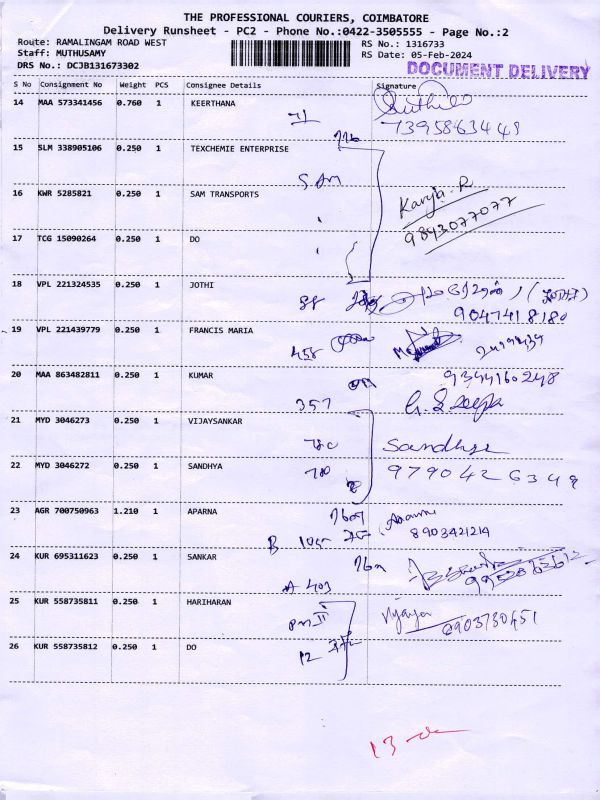 THE PROFESSIONAL COURIERS, COIMBATORE
Delivery Runsheet - PC2 - Phone No.:0422-3505555 - Page No.:2
Route: RAMALINGAM ROAD WEST
RS No.: 1316733
Staff: MUTHUSAMY
RS Date: 05-Feb-2024
DRS No.: DCJB131673302
DOCUMENT DELIVERY
S No Consignment No Weight PCS Consignee Details Signature
14 MAA 573341456 0.760 1 KEERTHANA
7395863449
15 SLM 338905106 0.250 1 TEXCHEMIE ENTERPRISE
SAM
16 KWR 5285821 0.250 1 SAM TRANSPORTS
Kavya. R
9843077077
17 TCG 15090264 0.250 1 DO
18 VPL 221324535 0.250 1 JOTHI
88
9047418180
19 VPL 221439779 0.250 1 FRANCIS MARIA
458
20 MAA 863482811 0.250 1 KUMAR
9344160248
357
21 MYD 3046273 0.250 1 VIJAYSANKAR
Sandhya
22 MYD 3046272 0.250 1 SANDHYA
9790426349
23 AGR 700750963 1.210 1 APARNA
8903421214
24 KUR 695311623 0.250 1 SANKAR
A 403
25 KUR 558735811 0.250 1 HARIHARAN
26 KUR 558735812 0.250 1 DO
12
13